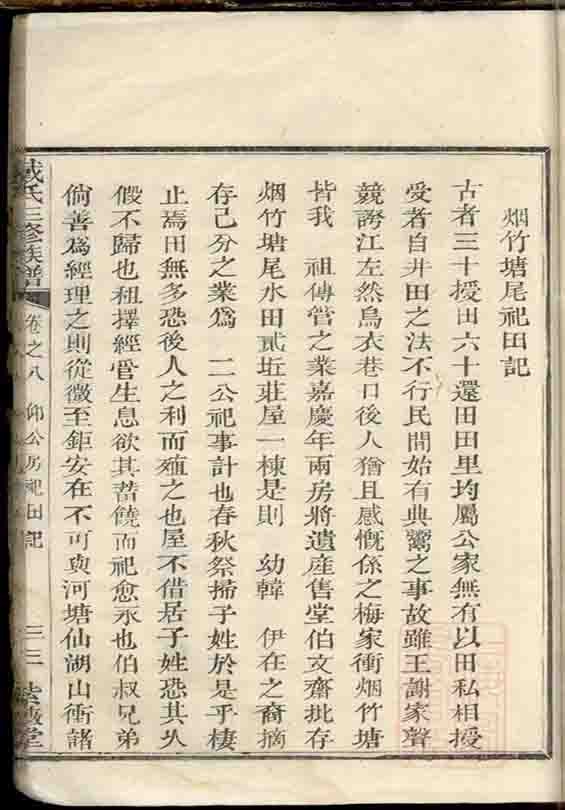 烟竹塘尾祀田記
古者三十授田六十還田田里均屬公家無有以田私相授
受者自井田之法不行民間始有典鬻之事故雖王謝家聲
競誇江左然烏衣巷口後人猶且感慨係之梅家衝烟竹塘
皆我 祖傳管之業嘉慶年兩房將遺産售堂伯文齋批存
烟竹塘尾水田貳坵莊屋一棟是則 幼韓 伊在之裔摘
存己分之業爲 二公祀事計也春秋祭掃子姓於是乎棲
止焉田無多恐後人之利而殖之也屋不借居子姓恐其久
假不歸也租擇經管生息欲其蓄饒而祀愈永也伯叔兄弟
倘善爲經理之則從微至鉅安在不可與河塘仙湖山衝諸
戴氏三修族譜
卷之八 仰公房祀田記
三三 紫薇堂